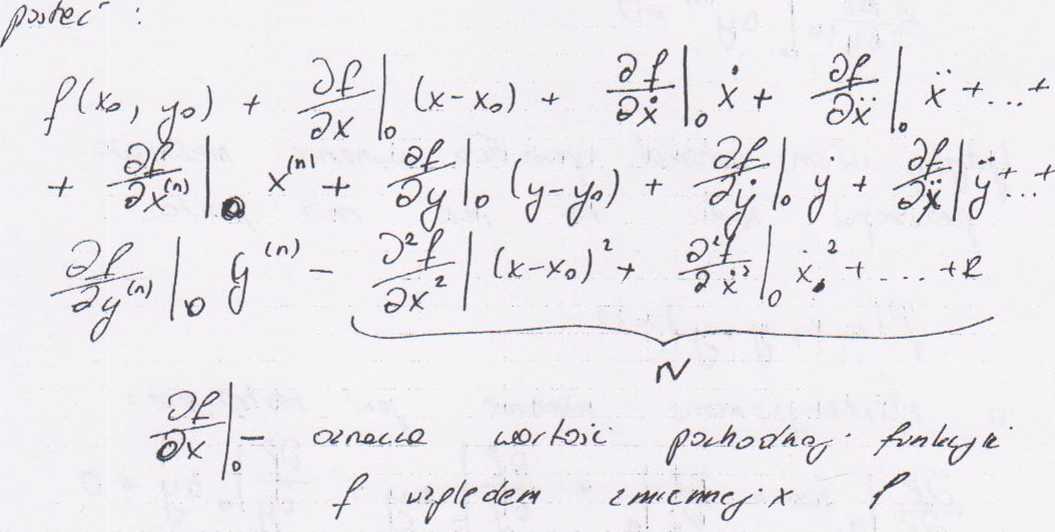 postać :
f(x₀, y₀) + ∂f/∂x|₀ (x-x₀) + ∂f/∂ẋ|₀ ẋ + ∂f/∂ẍ|₀ ẍ + ... +
+ ∂f/∂x⁽ⁿ⁾|₀ x⁽ⁿ⁾ + ∂f/∂y|₀ (y-y₀) + ∂f/∂ẏ|₀ ẏ + ∂f/∂ẍ| ÿ + ... +
∂f/∂y⁽ⁿ⁾|₀ y⁽ⁿ⁾ - ∂²f/∂x²| (x-x₀)² + ∂²f/∂ẋ²|₀ ẋ² + .... + R
N
∂f/∂x|₀ - oznacza wartość pochodnej funkcji
f względem zmiennej x